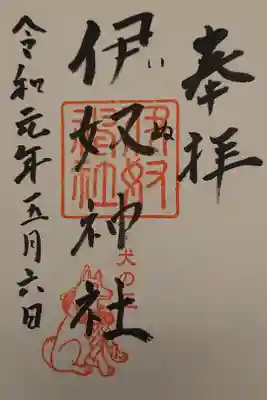 奉拝
伊奴神社
いぬ
伊奴神社
犬の王
令和元年五月六日